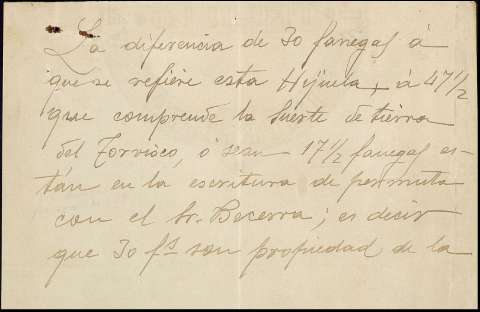 La diferencia de 30 fanegas á
que se refiere esta Hijuela, á 47 1/2
que comprende la suerte de tierra
del Torvisco, ó sean 17 1/2 fanegas es-
tán en la escritura de permuta
con el Sr. Becerra; es decir
que 30 fs son propiedad de la